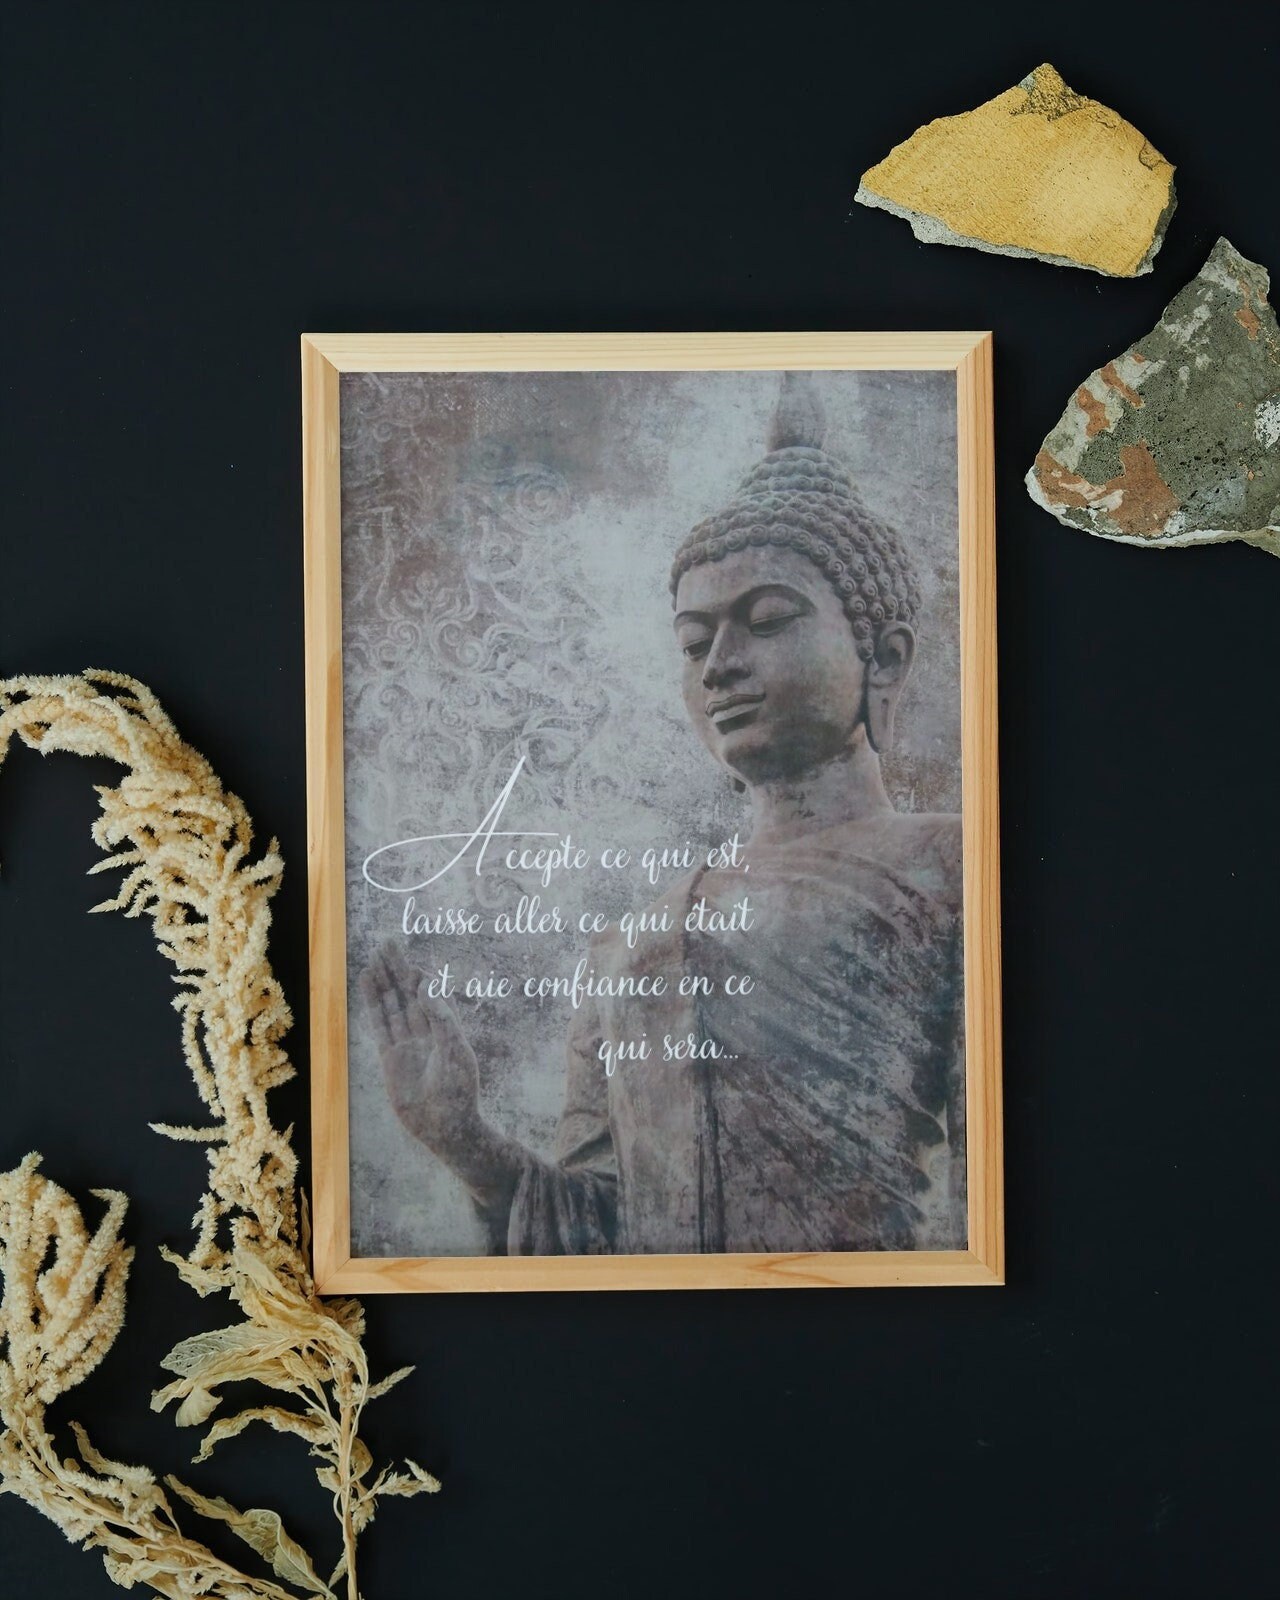 Accepte ce qui est,
laisse aller ce qui était
et aie confiance en ce
qui sera...